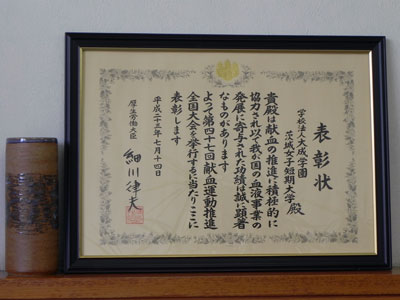 表彰状
学校法人大成学園
茨城女子短期大学 殿
貴殿は献血の推進に積極的に
協力され以て我が国の血液事業の
発展に寄与された功績は誠に顕著
なものがあります
よって第四十七回献血運動推進
全国大会を挙行するに当たりここに
表彰します
平成二十三年七月十四日
厚生労働大臣
細川律夫